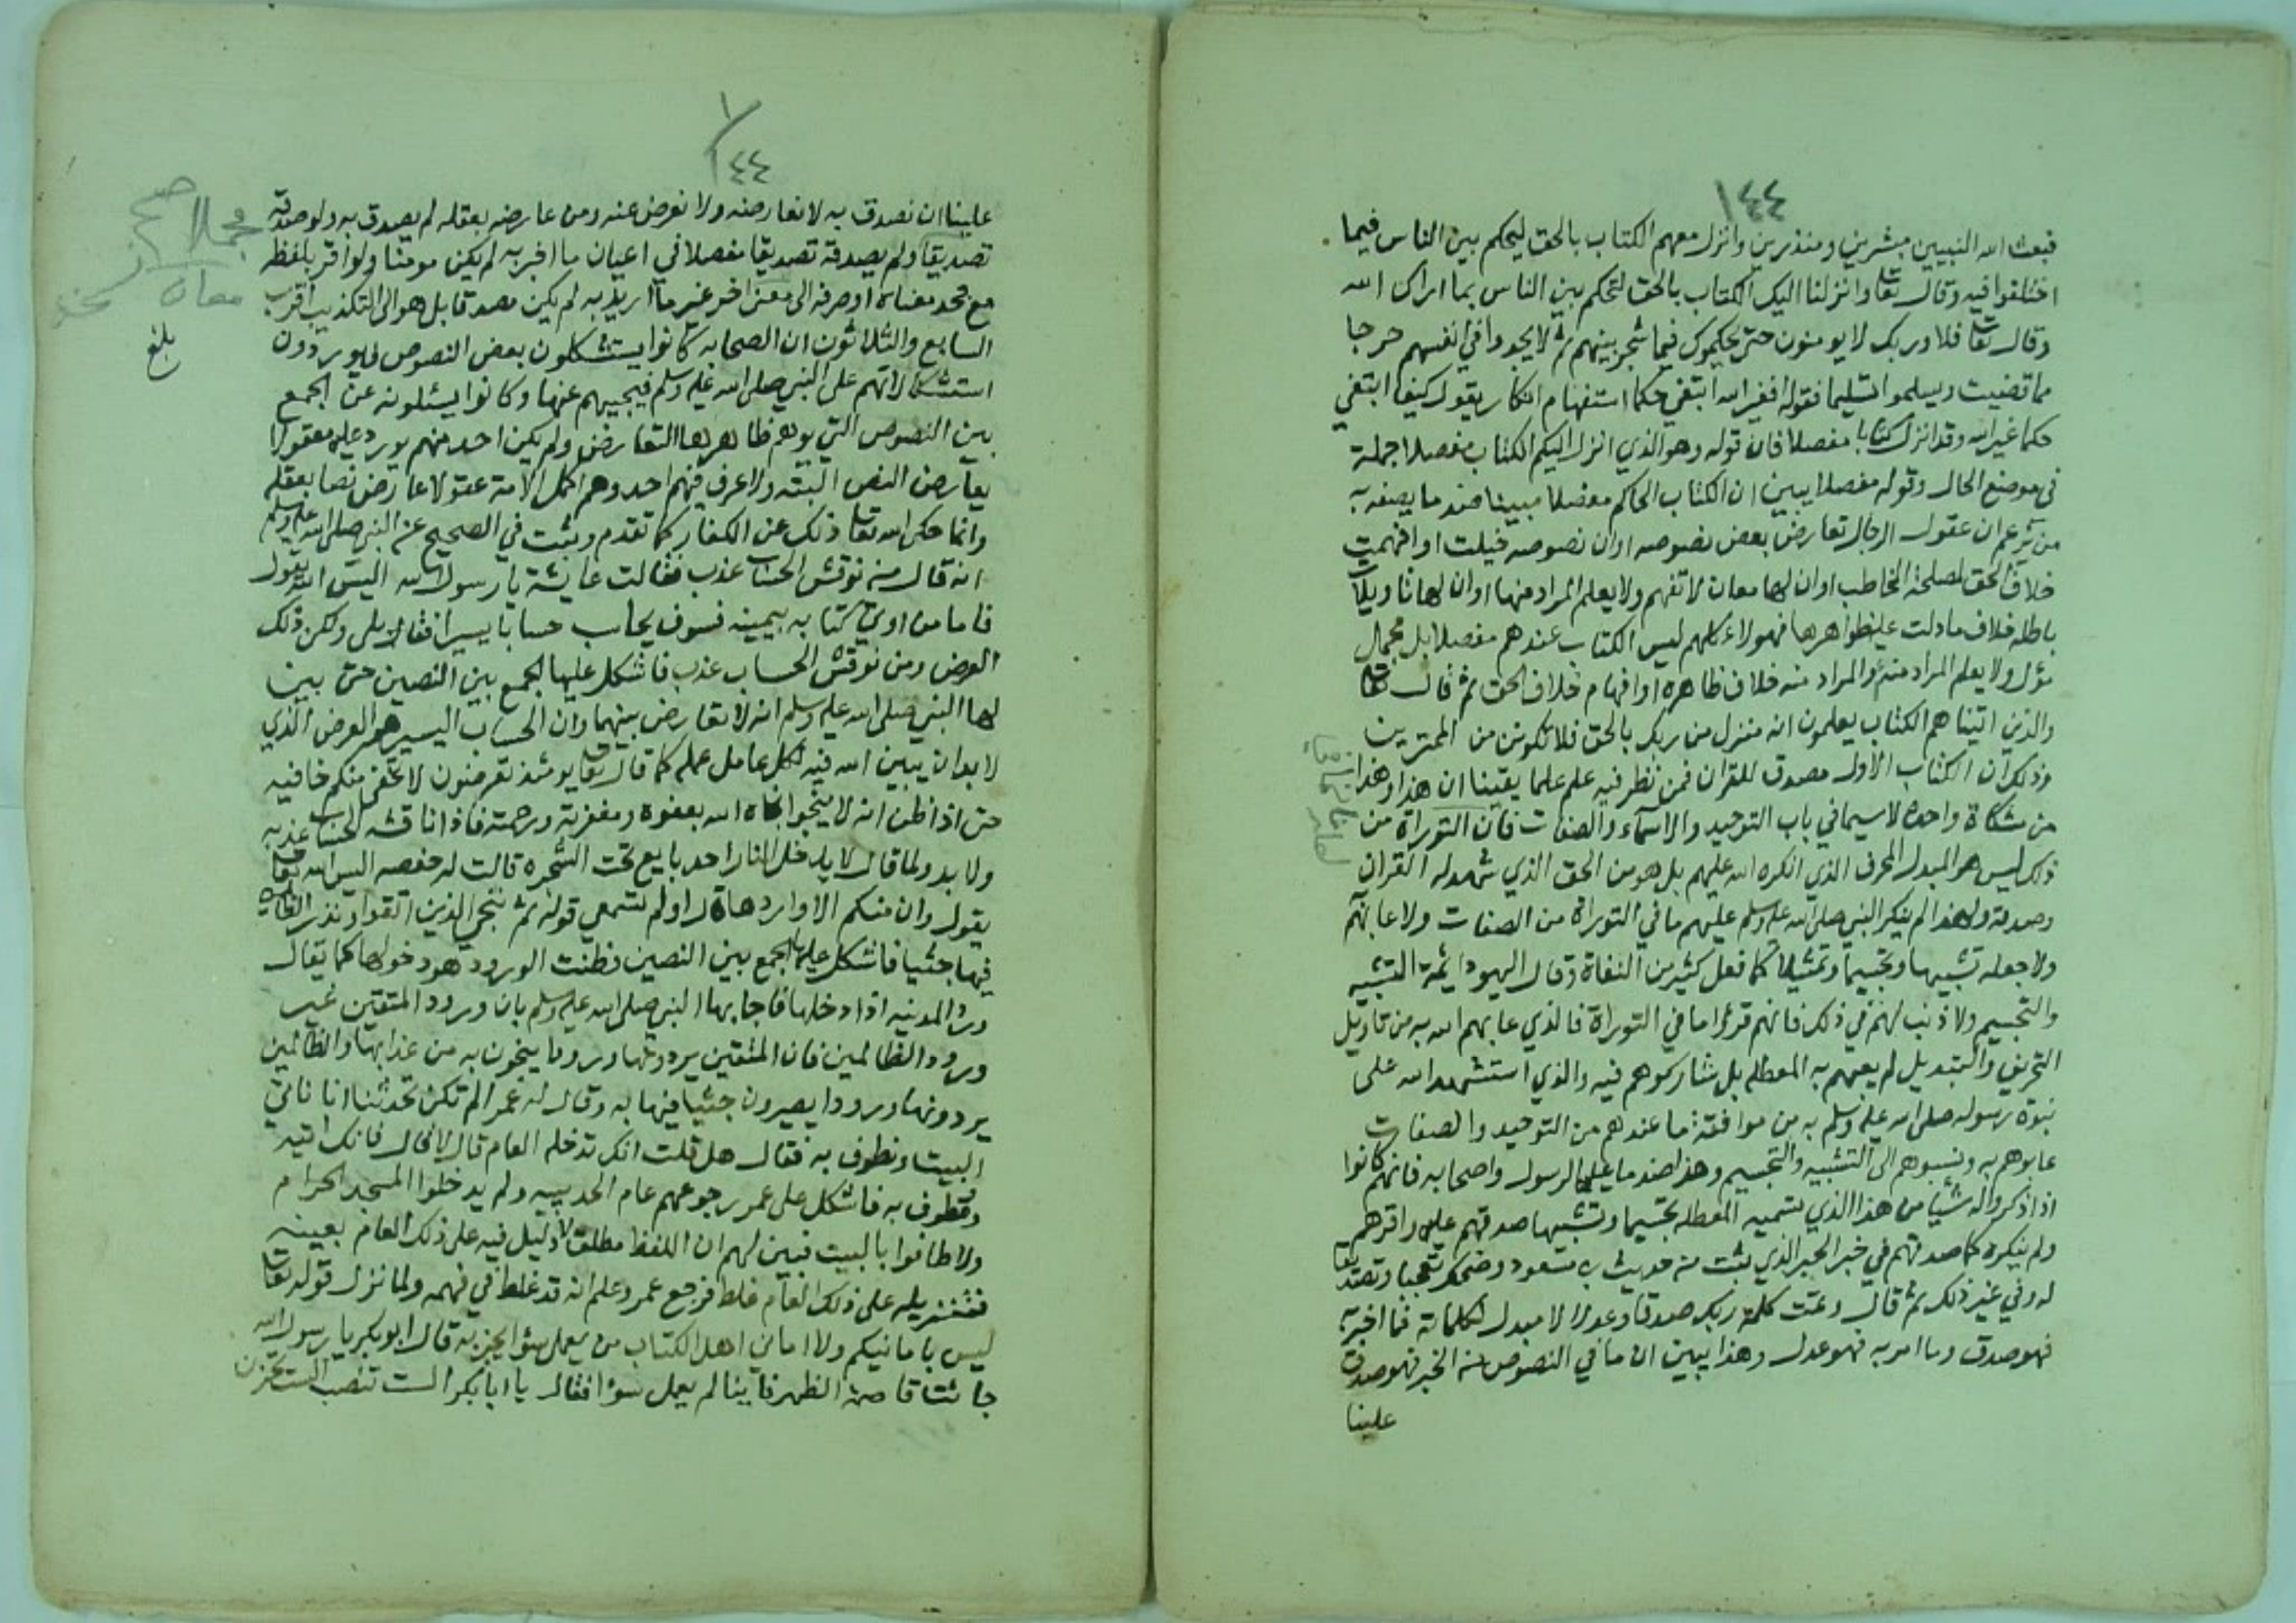 ١٤٤
فبعث الله النبيين مبشرين ومنذرين وانزل معهم الكتاب بالحق ليحكم بين الناس فيما
اختلفوا فيه وقال تعا وانزلنا اليك الكتاب بالحق لتحكم بين الناس بما اراك الله
وقال تعا فلا وربك لا يومنون حتى يحكموك فيما شجر بينهم ثم لا يجدوا في انفسهم حرجا
مما قضيت ويسلموا تسليما فقوله افغير الله ابتغي حكما استفهام انكار يقول كيف ابتغي
حكما غير الله وقد انزل كتابا مفصلا فان قوله وهو الذي انزل اليكم الكتاب مفصلا جملة
في موضع الحال وقوله مفصلا يبين ان الكتاب الحاكم مفصلا مبينا ضد ما يصفه به
من يزعم ان عقول الرجال تعارض بعض نصوصه او ان نصوصه خيلت او افهمت
خلاف الحق لمصلحة المخاطب او ان لها معان لا تفهم ولا يعلم المراد منها او ان لها تاويلات
باطله خلاف ما دلت عليه ظواهرها فهولاء كلهم ليس الكتاب عندهم مفصلا بل مجمل
مؤل ولا يعلم المراد منه والمراد منه خلاف ظاهره او افهام خلاف الحق ثم قال تعا
والذين اتيناهم الكتاب يعلمون انه منزل من ربك بالحق فلا تكونن من الممترين
وذلك ان الكتاب الاول مصدق للقران فمن نظر فيه علم علما يقينا ان هذا وهذا
من مشكاة واحدة لاسيما في باب التوحيد والاسماء والصفات فان التوراة من
ذلك ليس هو المبدل المحرف الذي انكره الله عليهم بل هو من الحق الذي شهد له القران
وصدقه ولهذا لم ينكر النبي صلى الله عليه وسلم عليهم ما في التوراة من الصفات ولا عابهم
ولا جعله تشبيها وتجسيما وتمثيلا كما فعل كثير من النفاة وقال اليهود ائمة التشبيه
والتجسيم ولا ذنب لهم في ذلك فانهم قرؤا ما في التوراة فالذي عابهم الله به من تاويل
التحريف والتبديل لم يعبهم به المعطله بل شاركوهم فيه والذي استشهد الله على
نبوة رسوله صلى الله عليه وسلم به من موافقة ما عندهم من التوحيد والصفات
عابوهم به ونسبوهم الى التشبيه والتجسيم وهذا ضد ما عليه الرسول واصحابه فانهم كانوا
اذا ذكروا له شيئا من هذا الذي تسميه المعطله تجسيما وتشبيها صدقهم عليه واقرهم
ولم ينكره كما صدقهم في خبر الحبر الذي ثبت من حديث بن مسعود وضحك تعجبا وتصديقا
له وفي غير ذلك ثم قال وتمت كلمة ربك صدقا وعدلا لا مبدل لكلماته فما اخبر به
فهو صدق وما امر به فهو عدل وهذا يبين ان ما في النصوص من الخبر فهو صدق
علينا
١٤٤
علينا ان نصدق به لا نعارضه ولا نعرض عنه ومن عارضه بعقله لم يصدق به ولو صدقه
تصديقا ولم يصدقه تصديقا مفصلا في اعيان ما اخبر به لم يكن مومنا ولو اقر بلفظه
مع جحد معناه او صرفه الى معنى اخر غير ما اريد به لم يكن مصدقا بل هو الى التكذيب اقرب
السابع والثلاثون ان الصحابه كانوا يستشكلون بعض النصوص فيوردون
استشكالاتهم على النبي صلى الله عليه وسلم فيجيبهم عنها وكانوا يسئلونه عن الجمع
بين النصوص التي يوهم ظاهرها التعارض ولم يكن احد منهم يورد عليه معقولا
يعارض النص البته ولا عرف فيهم احد وهم اكمل الامة عقولا عارض نصا بعقله
وانما حكى الله تعا ذلك عن الكفار كما تقدم وثبت في الصحيح عن النبي صلى الله عليه وسلم
انه قال من نوقش الحساب عذب فقالت عايشة يا رسول الله اليس الله يقول
فاما من اوتي كتابه بيمينه فسوف يحاسب حسابا يسيرا فقال بلى ولكن ذلك
العرض ومن نوقش الحساب عذب فاشكل عليها الجمع بين النصين حتى بين
لها النبي صلى الله عليه وسلم انه لا تعارض بينهما وان الحساب اليسير هو العرض الذي
لا بد ان يبين الله فيه لكل عامل عمله كما قال تعا يومئذ تعرضون لا تخفى منكم خافيه
حتى اذا ظن انه لا ينجوا نجاه الله بعفوه ومغفرته ورحمته فاذا ناقشه الحساب عذبه
ولا بد ولما قال لا يدخل النار احد بايع تحت الشجره قالت له حفصه اليس الله تعا
يقول وان منكم الا واردها قال اولم تسمعي قوله ثم ننجي الذين اتقوا ونذر الظالمين
فيها جثيا فاشكل عليها الجمع بين النصين وظنت الورود هو دخولها كما يقال
ورد المدينه اذا دخلها فاجابها النبي صلى الله عليه وسلم بان ورود المتقين غير
ورود الظالمين فان المتقين يردونها ورودا ينجون به من عذابها والظالمين
يردونها ورودا يصيرون جثيا فيها به وقال له عمر الم تكن تحدثنا انا ناتي
البيت ونطوف به فقال هل قلت انك تدخله العام قال لا قال فانك اتيه
وتطوف به فاشكل على عمر رجوعهم عام الحديبيه ولم يدخلوا المسجد الحرام
ولا طافوا بالبيت فبين لهم ان اللفظ مطلق لا دليل فيه على ذلك العام بعينه
فتنزيله على ذلك العام غلط فرجع عمر وعلم انه قد غلط في فهمه ولما نزل قوله تعا
ليس بامانيكم ولا اماني اهل الكتاب من يعمل سوءا يجز به قال ابو بكر يا رسول الله
جائت قاصمة الظهر فاينا لم يعمل سوءا فقال يا ابا بكر الست تنصب الست تحزن
مجملا صح
معان
بلغ